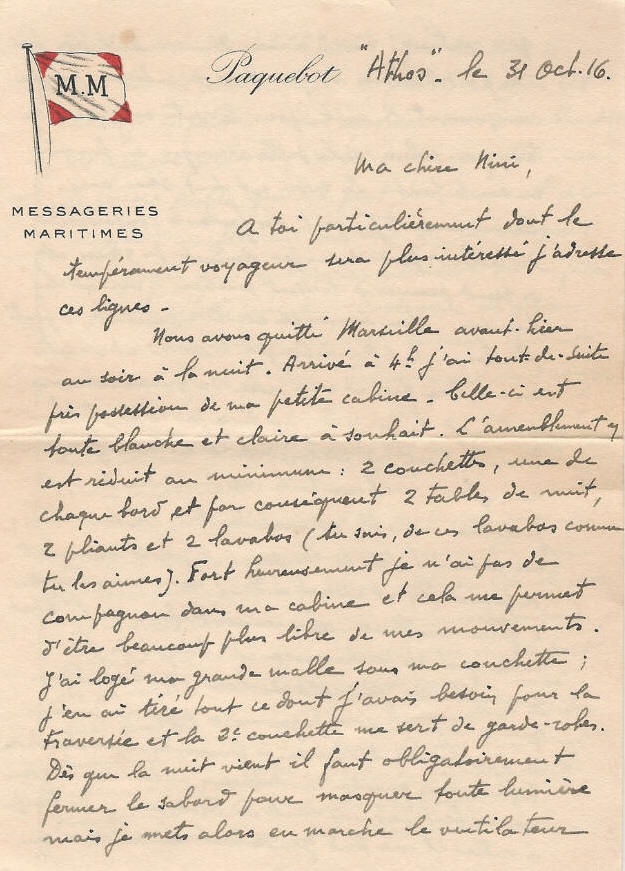 M.M
Paquebot "Athos" - le 31 Oct. 16.
Ma chère Nini,
MESSAGERIES
MARITIMES
A toi particulièrement dont le
tempérament voyageur sera plus intéressé j'adresse
ces lignes -
Nous avons quitté Marseille avant-hier
au soir à la nuit. Arrivé à 4h j'ai tout-de-suite
pris possession de ma petite cabine - Celle-ci est
toute blanche et claire à souhait. L'ameublement y
est réduit au minimum : 2 couchettes, une de
chaque bord et par conséquent 2 tables de nuit,
2 pliants et 2 lavabos (tu sais, de ces lavabos comme
tu les aimes). Fort heureusement je n'ai pas de
compagnon dans ma cabine et cela me permet
d'être beaucoup plus libre de mes mouvements.
J'ai logé ma grande malle sous ma couchette ;
j'en ai tiré tout ce dont j'avais besoin pour la
traversée et la 2e couchette me sert de garde-robes.
Dès que la nuit vient il faut obligatoirement
fermer le sabord pour masquer toute lumière
mais je mets alors en marche le ventilateur